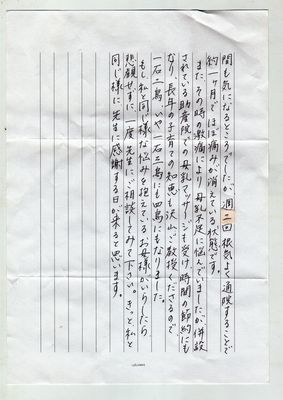 間も気になるところでしたが、週二回根気よく通院することで
約一ヶ月でほぼ痛みが消えている状態です。
また、その時の激痛により母乳不足に悩んでいましたが、併設
されている助産院での母乳マッサージも受け、時間の節約にも
なり、長年の子育ての知恵も沢山ご教授くださるので
一石二鳥、いや一石三鳥にも四鳥にもなりました。
もし私と同じ様な悩みを抱えているお母様がいらしたら
悲観せずに、一度先生にご相談してみて下さい。きっと私と
同じ様に先生に感謝する日が来ると思います。